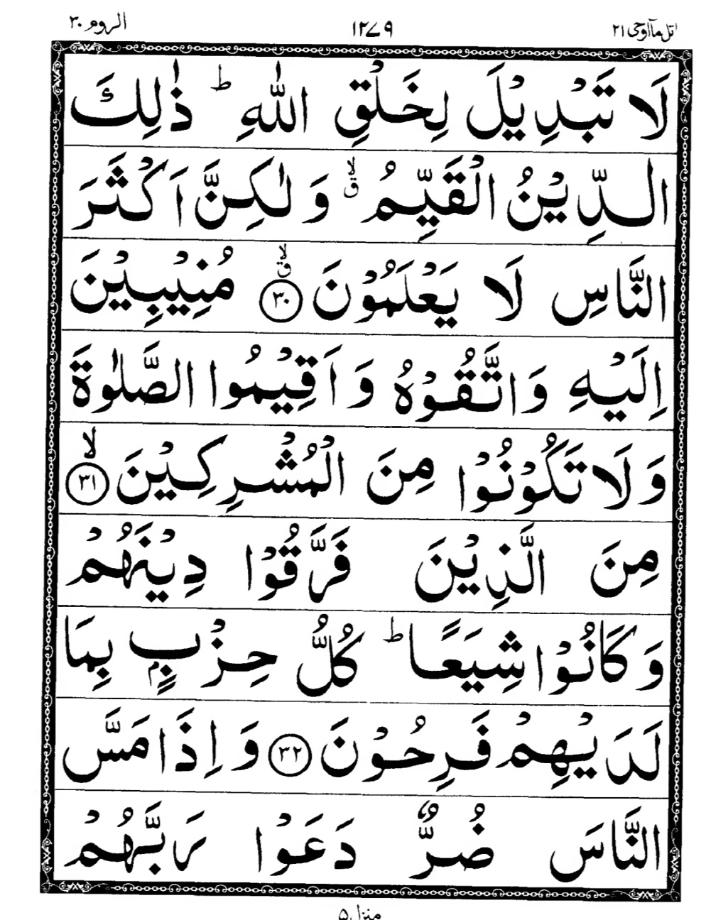 اتل مآ اوحی ۲۱ ۱۲۷۹ الروم ۳۰
لَا تَبْدِیْلَ لِخَلْقِ اللّٰهِ ؕ ذٰلِكَ
الدِّیْنُ الْقَیِّمُ ۙۗ وَ لٰكِنَّ اَكْثَرَ
النَّاسِ لَا یَعْلَمُوْنَ ۙۗ ﴿۳۰﴾ مُنِیْبِیْنَ
اِلَیْهِ وَ اتَّقُوْهُ وَ اَقِیْمُوا الصَّلٰوةَ
وَ لَا تَكُوْنُوْا مِنَ الْمُشْرِكِیْنَ ۙ ﴿۳۱﴾
مِنَ الَّذِیْنَ فَرَّقُوْا دِیْنَهُمْ
وَ كَانُوْا شِیَعًا ؕ كُلُّ حِزْبٍۭ بِمَا
لَدَیْهِمْ فَرِحُوْنَ ﴿۳۲﴾ وَ اِذَا مَسَّ
النَّاسَ ضُرٌّ دَعَوْا رَبَّهُمْ
منزل ۵